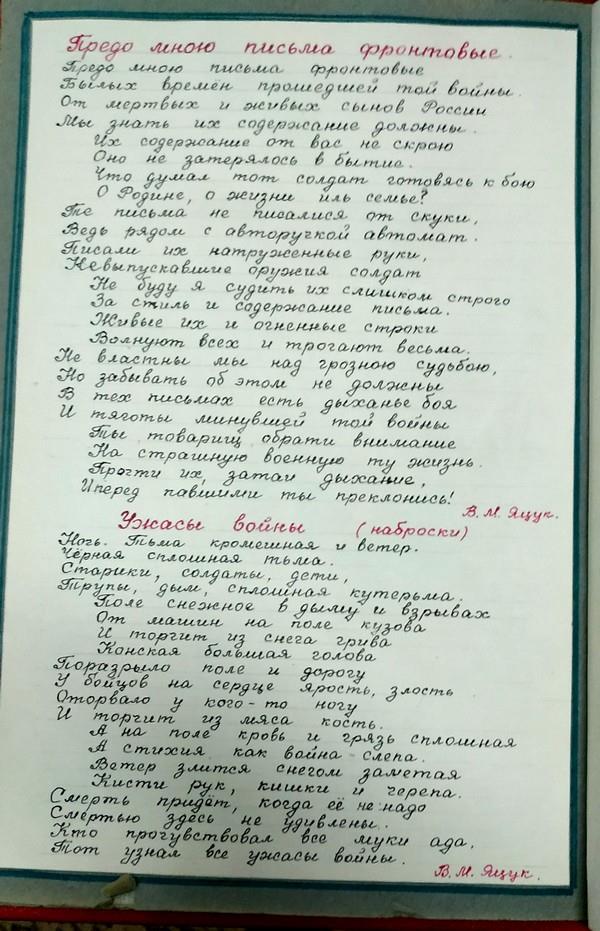 Предо мною письма фронтовые.
Предо мною письма фронтовые
Былых времён прошедшей той войны.
От мертвых и живых сынов России
Мы знать их содержание должны.
Их содержание от вас не скрою
Оно не затерялось в бытие.
Что думал тот солдат готовясь к бою
О Родине, о жизни иль семье?
Те письма не писалися от скуки,
Ведь рядом с авторучкой автомат.
Писали их натруженные руки,
Невыпускавшие оружия солдат
Не буду я судить их слишком строго
За стиль и содержание письма.
Живые их и огненные строки
Волнуют всех и трогают весьма.
Не властны мы над грозною судьбою,
Но забывать об этом не должны
В тех письмах есть дыханье боя
И тяготы минувшей той войны
Ты товарищ обрати внимание
На страшную военную ту жизнь.
Прочти их, затаи дыхание,
Иперед павшими ты преклонись!
В. М. Ящук.
Ужасы войны (наброски)
Ночь. Тьма кромешная и ветер.
Чёрная сплошная тьма.
Старики, солдаты, дети,
Трупы, дым, сплошная кутерьма.
Поле снежное в дыму и взрывах
От машин на поле кузова
И торчит из снега грива
Конская большая голова
Поразрыло поле и дорогу
У бойцов на сердце ярость, злость
Оторвало у кого-то ногу
И торчит из мяса кость.
А на поле кровь и грязь сплошная
А стихия как война - слепа.
Ветер злится снегом заметая
Кисти рук, кишки и черепа.
Смерть придёт, когда её не надо
Смертью здесь не удивлены.
Кто прочувствовал все муки ада,
Тот узнал все ужасы войны.
В. М. Ящук.